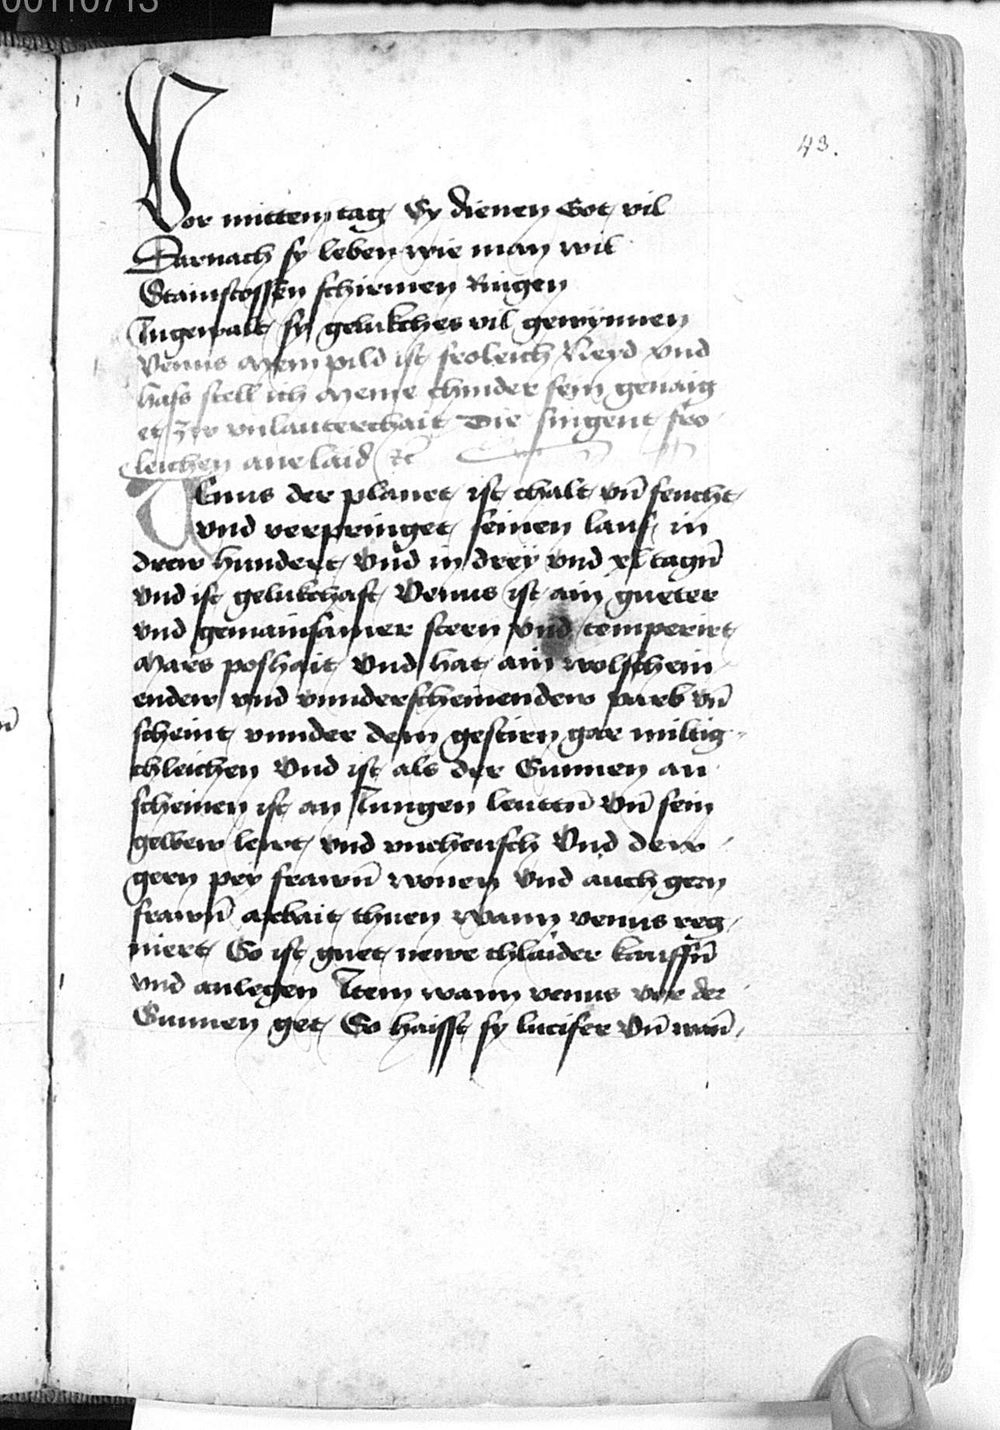 00110713
43.
Vor mittem tag Sy dienen Got vil
Darnach sy leben wie man wil
Stainstossen schirmen Ringen
Ingewalt sy gelukches vil gewynnen
Venus mein pild ist froleich Neyd vnd
hass stell ich meine chinder sein genaig
et zw vnlauterchait Die singent fro
leichen ane laid etc
VEnus der planet ist chalt vn̄ feucht
vnd verpringet seinen lauf in
drew hundert vnd in drey vnd xl tagn̄
vnd ist gelukchaft Venus ist ain gueter
vnd gemainsamer stern vnd temperirt
Mars poshait Vnd hat ain wolschein
endew vnd vnnderscheinendew varb vn̄
scheint vnnder dem gestirn gar miltig
chleichen Vnd ist als der Sunnen an
scheinen ist an Jungen leuttn̄ Vn̄ sein
gelbew lewt vnd vncheusch Vnd dew
gern pey frawn̄ wonen Vnd auch gern
frawn̄ arbait thuen Wann venus reg
niert So ist guet newe chlaider kauffn̄
vnd anlegen Item wann venus vor der
Sunnen get So haisst sy lucifer Vn̄ wan̄